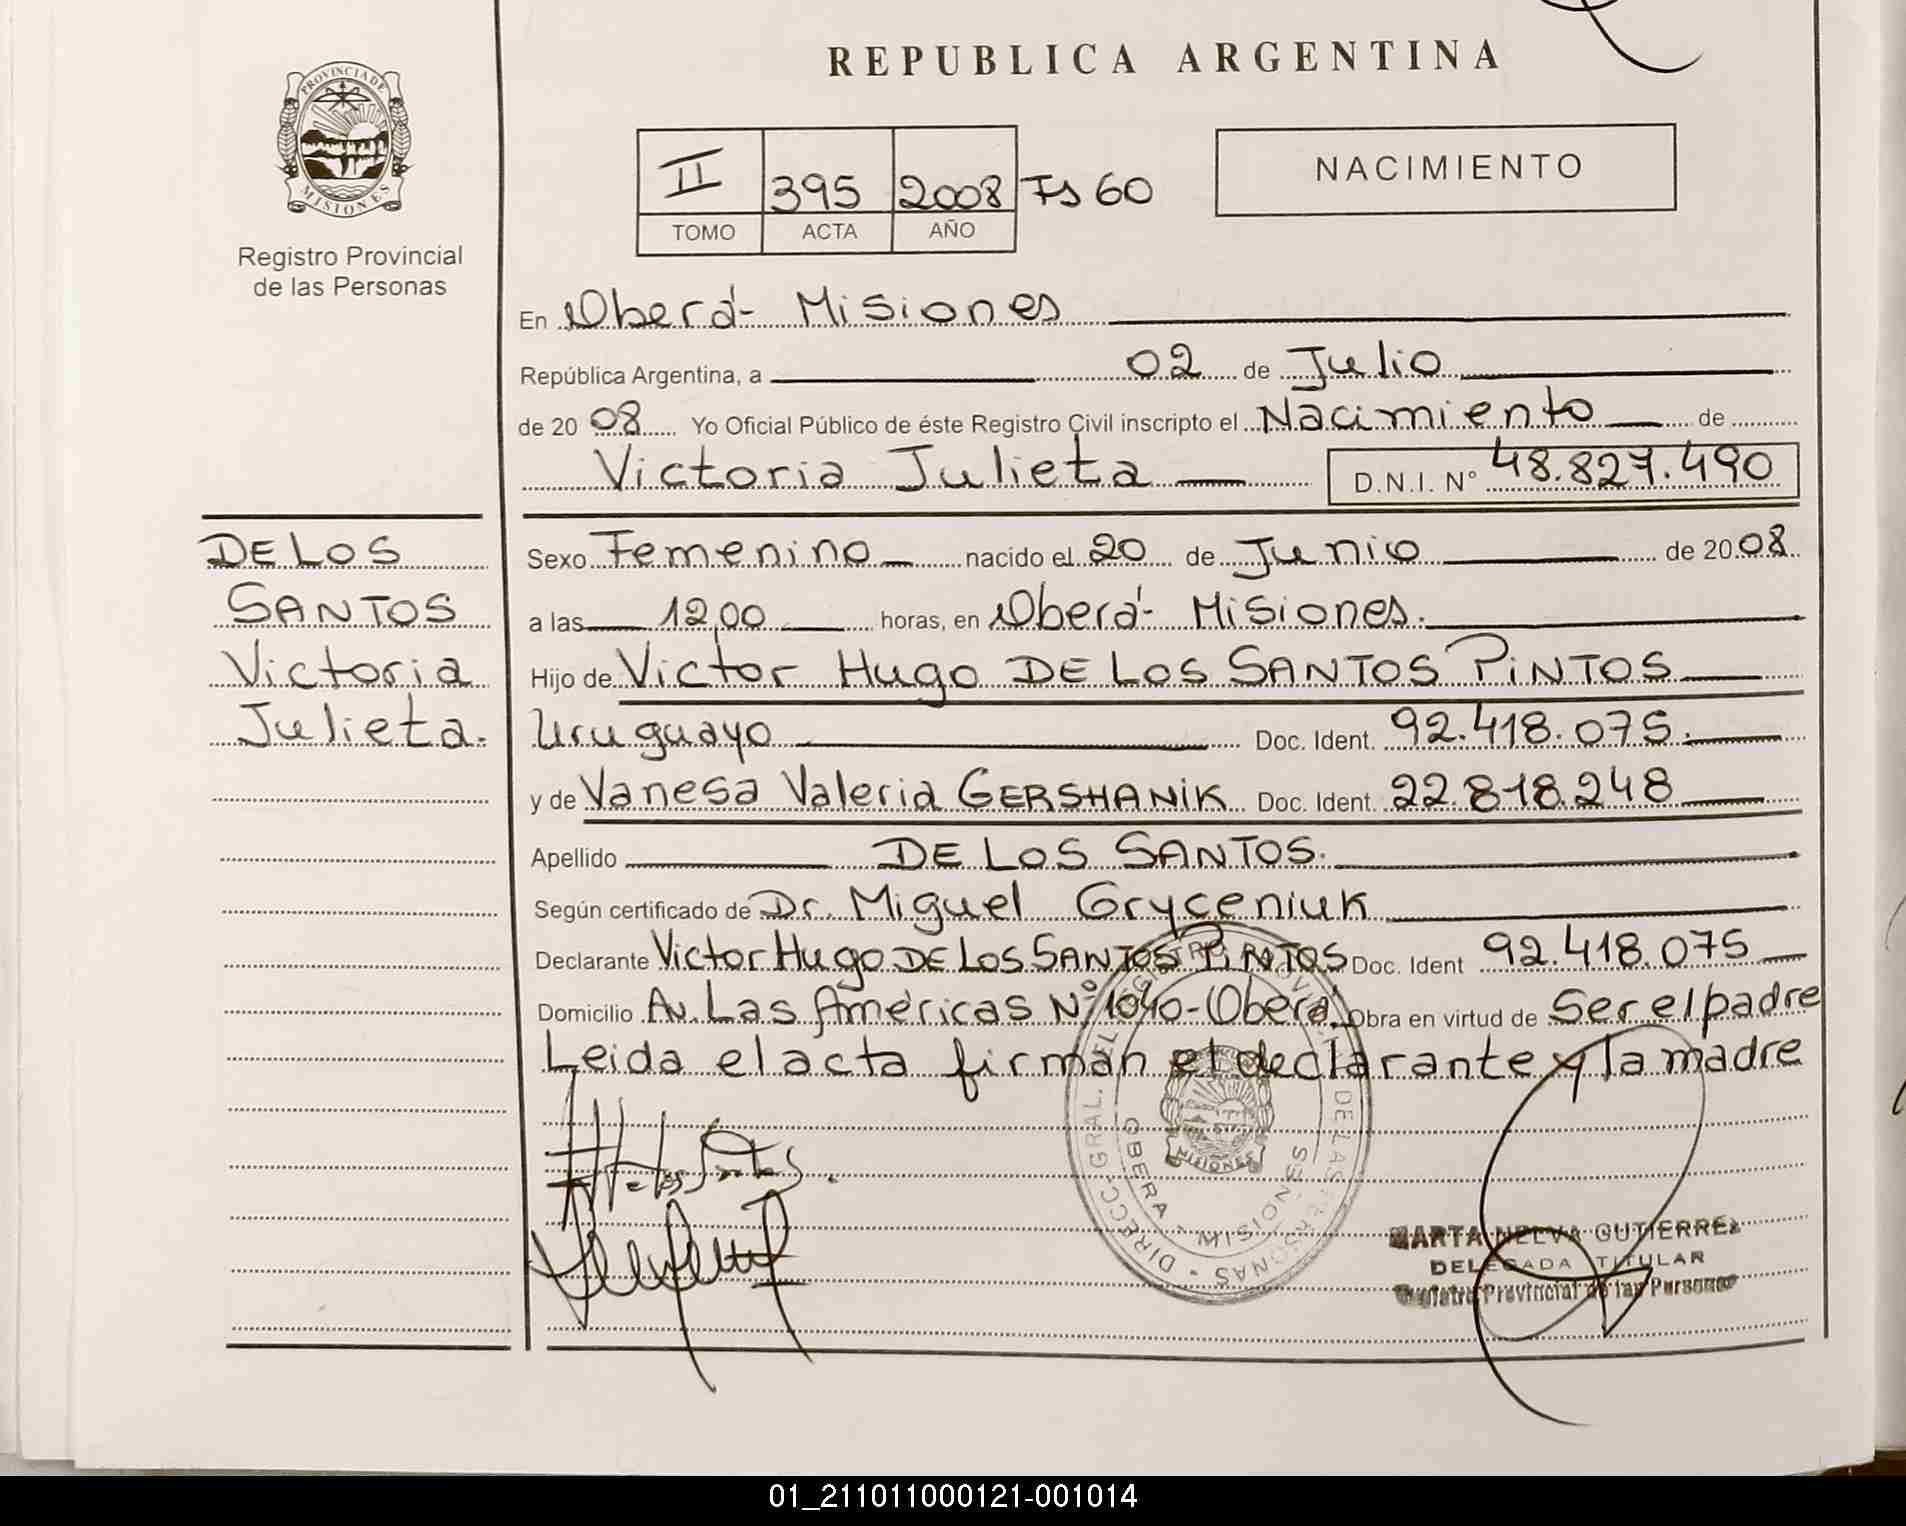 REPUBLICA ARGENTINA
PROVINCIA DE MISIONES
Registro Provincial
de las Personas
II 395 2008 Fs 60
TOMO ACTA AÑO
NACIMIENTO
En Oberá- Misiones
República Argentina, a 02 de Julio
de 20 08 Yo Oficial Público de éste Registro Civil inscripto el Nacimiento de
Victoria Julieta D.N.I. N° 48.827.490
DE LOS
SANTOS
Victoria
Julieta.
Sexo Femenino nacido el 20 de Junio de 20 08
a las 12,00 horas, en Oberá- Misiones.
Hijo de Victor Hugo DE LOS SANTOS PiNTOS
Uruguayo Doc. Ident. 92.418.075.
y de Vanesa Valeria GERSHANiK Doc. Ident. 22.818.248
Apellido DE LOS SANTOS.
Según certificado de Dr. Miguel Gryceniuk
Declarante Victor Hugo DE LOS SANTOS PiNTOS Doc. Ident 92.418.075
Domicilio Av. Las Américas N° 1040-Oberá. Obra en virtud de Ser el padre
Leida el acta firman el declarante y la madre
DIRECC. GRAL. DEL REGISTRO PROVINCIAL DE LAS PERSONAS
OBERA MISIONES
MISIONES
MARTA NELVA GUTIERREZ
DELEGADA TITULAR
Registro Provincial de las Personas
01_211011000121-001014